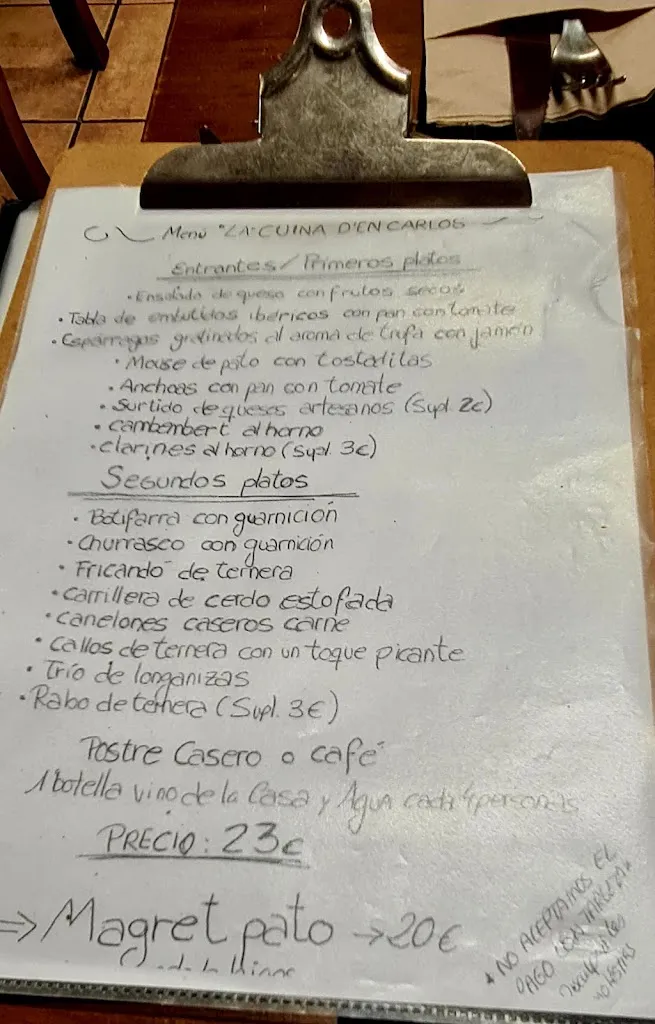 Menú "LA CUINA D'EN CARLOS
Entrantes/Primeros platos
• Ensalada de queso con frutos secos
• Tabla de embutidos ibéricos con pan con tomate
• Espárragos gratinados al aroma de trufa con jamón
• Mouse de pato con tostaditas
• Anchoas con pan con tomate
• Surtido de queses artesanos (Supl. 2€)
• Cambembert al horno
• Clarines al horno (Supl. 3€)
Segundos platos
• Botifarra con guarnición
• Churrasco con guarnición
• Fricandó de ternera
• Carrillera de cerdo estofada
• Canelones caseros carne
• Callos de ternera con un toque picante
• Trío de longanizas
• Rabo de ternera (Supl. 3€)
Postre Casero o café
1 botella vino de la Casa y Agua cada 4 personas
PRECIO: 23€
⇒ Magret pato → 20€
* NO ACEPTAMOS EL
PAGO CON TARJETA.
Disculpen las
MOLESTIAS